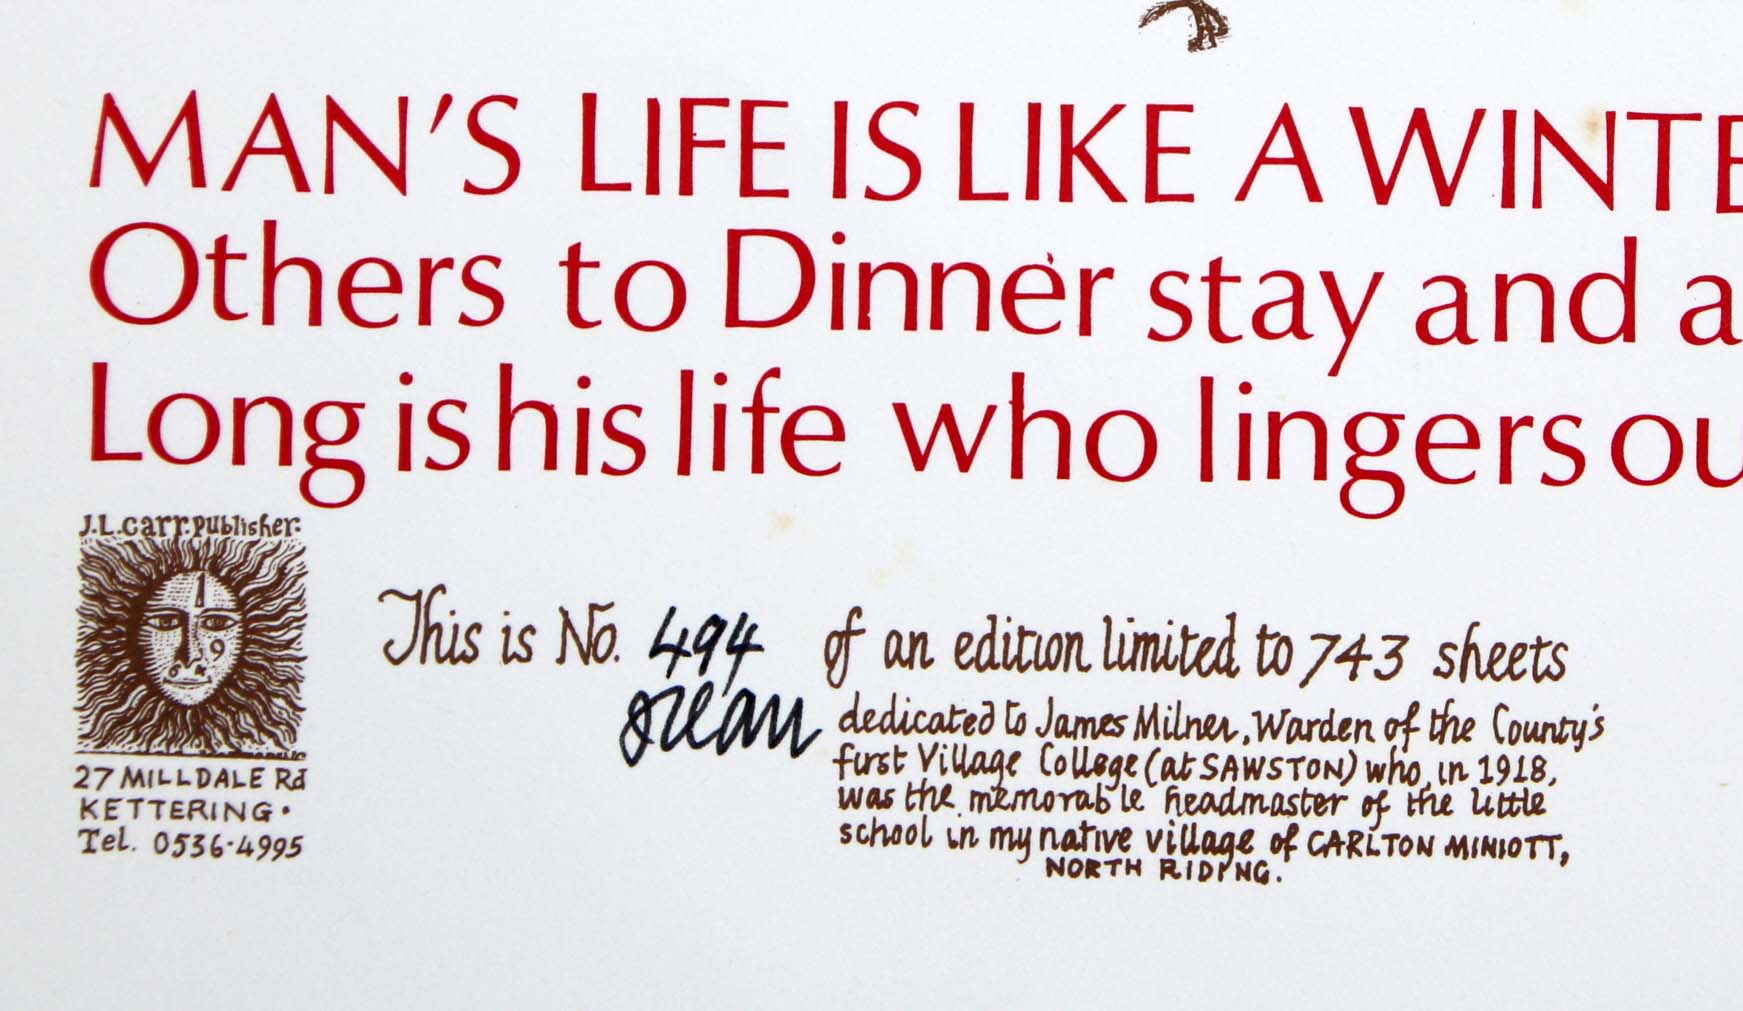 MAN'S LIFE IS LIKE A WINTE
Others to Dinner stay and a
Long is his life who lingers ou
J.L.Carr.Publisher:
27 MILLDALE Rd
KETTERING.
Tel. 0536-4995
This is No. 494 of an edition limited to 743 sheets
dedicated to James Milner, Warden of the County's
first Village College (at SAWSTON) who, in 1918,
was the memorable headmaster of the little
school in my native village of CARLTON MINIOTT,
NORTH RIDING.